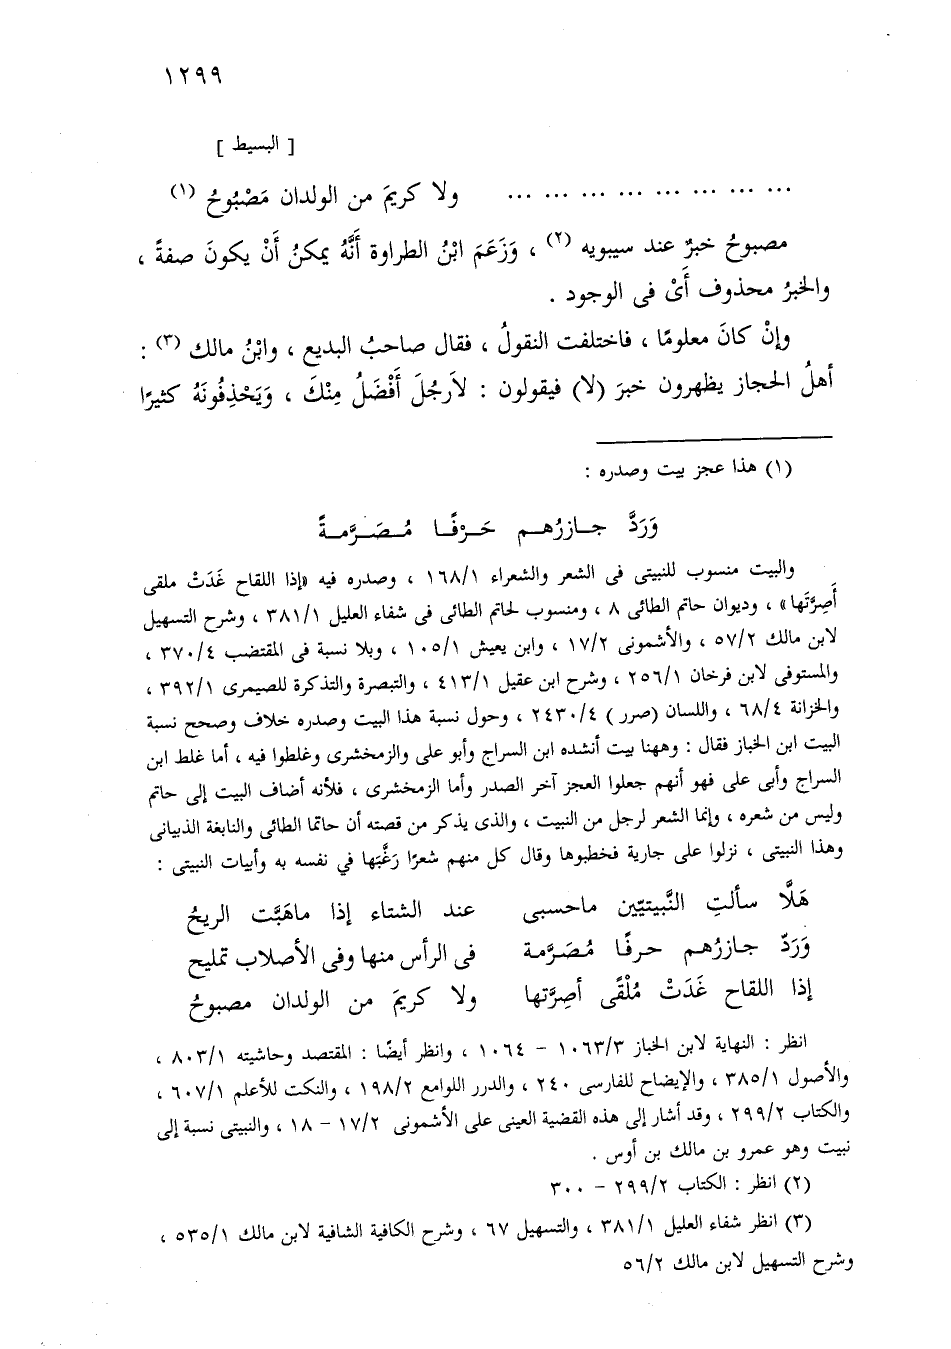 ١٢٩٩
[ البسيط ]
... ... ... ... ... ... ... ... ولا كريمَ من الولدان مَصْبُوحُ (١)
مصبوحُ خبرٌ عند سيبويه (٢) ، وَزَعَمَ ابْنُ الطراوة أَنَّهُ يمكنُ أَنْ يكونَ صفةً ،
والخبرُ محذوف أَىْ فى الوجود .
وإنْ كانَ معلومًا ، فاختلفت النقولُ ، فقال صاحبُ البديع ، وابْنُ مالك (٣) :
أهلُ الحجاز يظهرون خبرَ (لا) فيقولون : لاَرجُلَ أَفْضَلُ مِنْكَ ، وَيَحْذِفُونَهُ كثيرًا
(١) هذا عجز بيت وصدره :
وَرَدَّ جـازرُهـم حَـرْفًـا مُـصَـرَّمـةً
والبيت منسوب للنبيتى فى الشعر والشعراء ١٦٨/١ ، وصدره فيه «إذا اللقاح غَدَتْ ملقى
أَصِرَّتَها» ، وديوان حاتم الطائى ٨ ، ومنسوب لحاتم الطائى فى شفاء العليل ٣٨١/١ ، وشرح التسهيل
لابن مالك ٥٧/٢ ، والأشمونى ١٧/٢ ، وابن يعيش ١٠٥/١ ، وبلا نسبة فى المقتضب ٣٧٠/٤ ،
والمستوفى لابن فرخان ٢٥٦/١ ، وشرح ابن عقيل ٤١٣/١ ، والتبصرة والتذكرة للصيمرى ٣٩٢/١ ،
والخزانة ٦٨/٤ ، واللسان (صرر) ٢٤٣٠/٤ ، وحول نسبة هذا البيت وصدره خلاف وصحح نسبة
البيت ابن الخباز فقال : وههنا بيت أنشده ابن السراج وأبو على والزمخشرى وغلطوا فيه ، أما غلط ابن
السراج وأبى على فهو أنهم جعلوا العجز آخر الصدر وأما الزمخشرى ، فلأنه أضاف البيت إلى حاتم
وليس من شعره ، وإنما الشعر لرجل من النبيت ، والذى يذكر من قصته أن حاتما الطائى والنابغة الذبيانى
وهذا النبيتى ، نزلوا على جارية فخطبوها وقال كل منهم شعرًا رَغَّبَها في نفسه به وأبيات النبيتى :
هَلَّا سألتِ النَّبيتيّين ماحسبى عند الشتاء إذا ماهَبَّت الريحُ
وَرَدّ جازرُهم حرفًا مُصَرَّمة فى الرأس منها وفى الأصلاب تمليح
إذا اللقاح غَدَتْ مُلْقًى أصِرَّتها ولا كريمَ من الولدان مصبوحُ
انظر : النهاية لابن الخباز ١٠٦٣/٣ - ١٠٦٤ ، وانظر أيضًا : المقتصد وحاشيته ٨٠٣/١ ،
والأصول ٣٨٥/١ ، والإيضاح للفارسى ٢٤٠ ، والدرر اللوامع ١٩٨/٢ ، والنكت للأعلم ٦٠٧/١ ،
والكتاب ٢٩٩/٢ ، وقد أشار إلى هذه القضية العينى على الأشمونى ١٧/٢ - ١٨ ، والنبيتى نسبة إلى
نبيت وهو عمرو بن مالك بن أوس .
(٢) انظر : الكتاب ٢٩٩/٢ - ٣٠٠
(٣) انظر شفاء العليل ٣٨١/١ ، والتسهيل ٦٧ ، وشرح الكافية الشافية لابن مالك ٥٣٥/١ ،
وشرح التسهيل لابن مالك ٥٦/٢